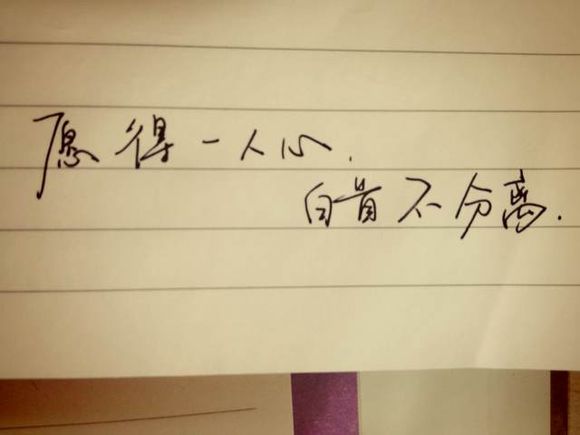 愿得一人心.
白首不分离.